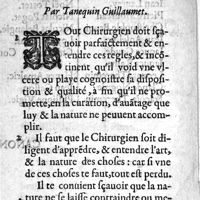 Par Tanequin Guillaumet.
TOut Chirurgien doit sça-
uoir parfaictement & en-
tendre ces regles, & incō-
tinent qu'il void vne vl-
cere ou playe cognoistre sa disposi-
tion & qualité, à fin qu'il ne pro-
mette, en la curation, d'auātage que
luy & la nature ne peuuent accom-
plir.
2 Il faut que le Chirurgien soit di-
ligent d'apprēdre, & entendre l'art,
& la nature des choses : car si vne
de ces choses te faut, tout est perdu.
Il te conuient sçauoir que la na-
ture ne se laisse contraindre ou me-